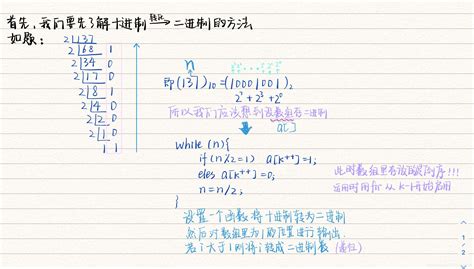 首先,我们要先了解十进制 转化→ 二进制的方法
如题:
2 137
2 68 1
2 34 0
2 17 0
2 8 1
2 4 0
2 2 0
2 1 0
1 1
n
即(137)10=(10001001)2
2^7+2^3+2^0
所以我们应该想到设数组存二进制
a[]
while (n){
if(n%2=1) a[k++]=1;
eles a[k++]=0;
n=n/2;
}
此时数组里存放的
!!!
运用时用for从k-1开始启用
设置一个函数将十进制转为二进制
然后对数组里为1的位置进行输出
若i大于1则将i转成二进制数(递归)
1/2